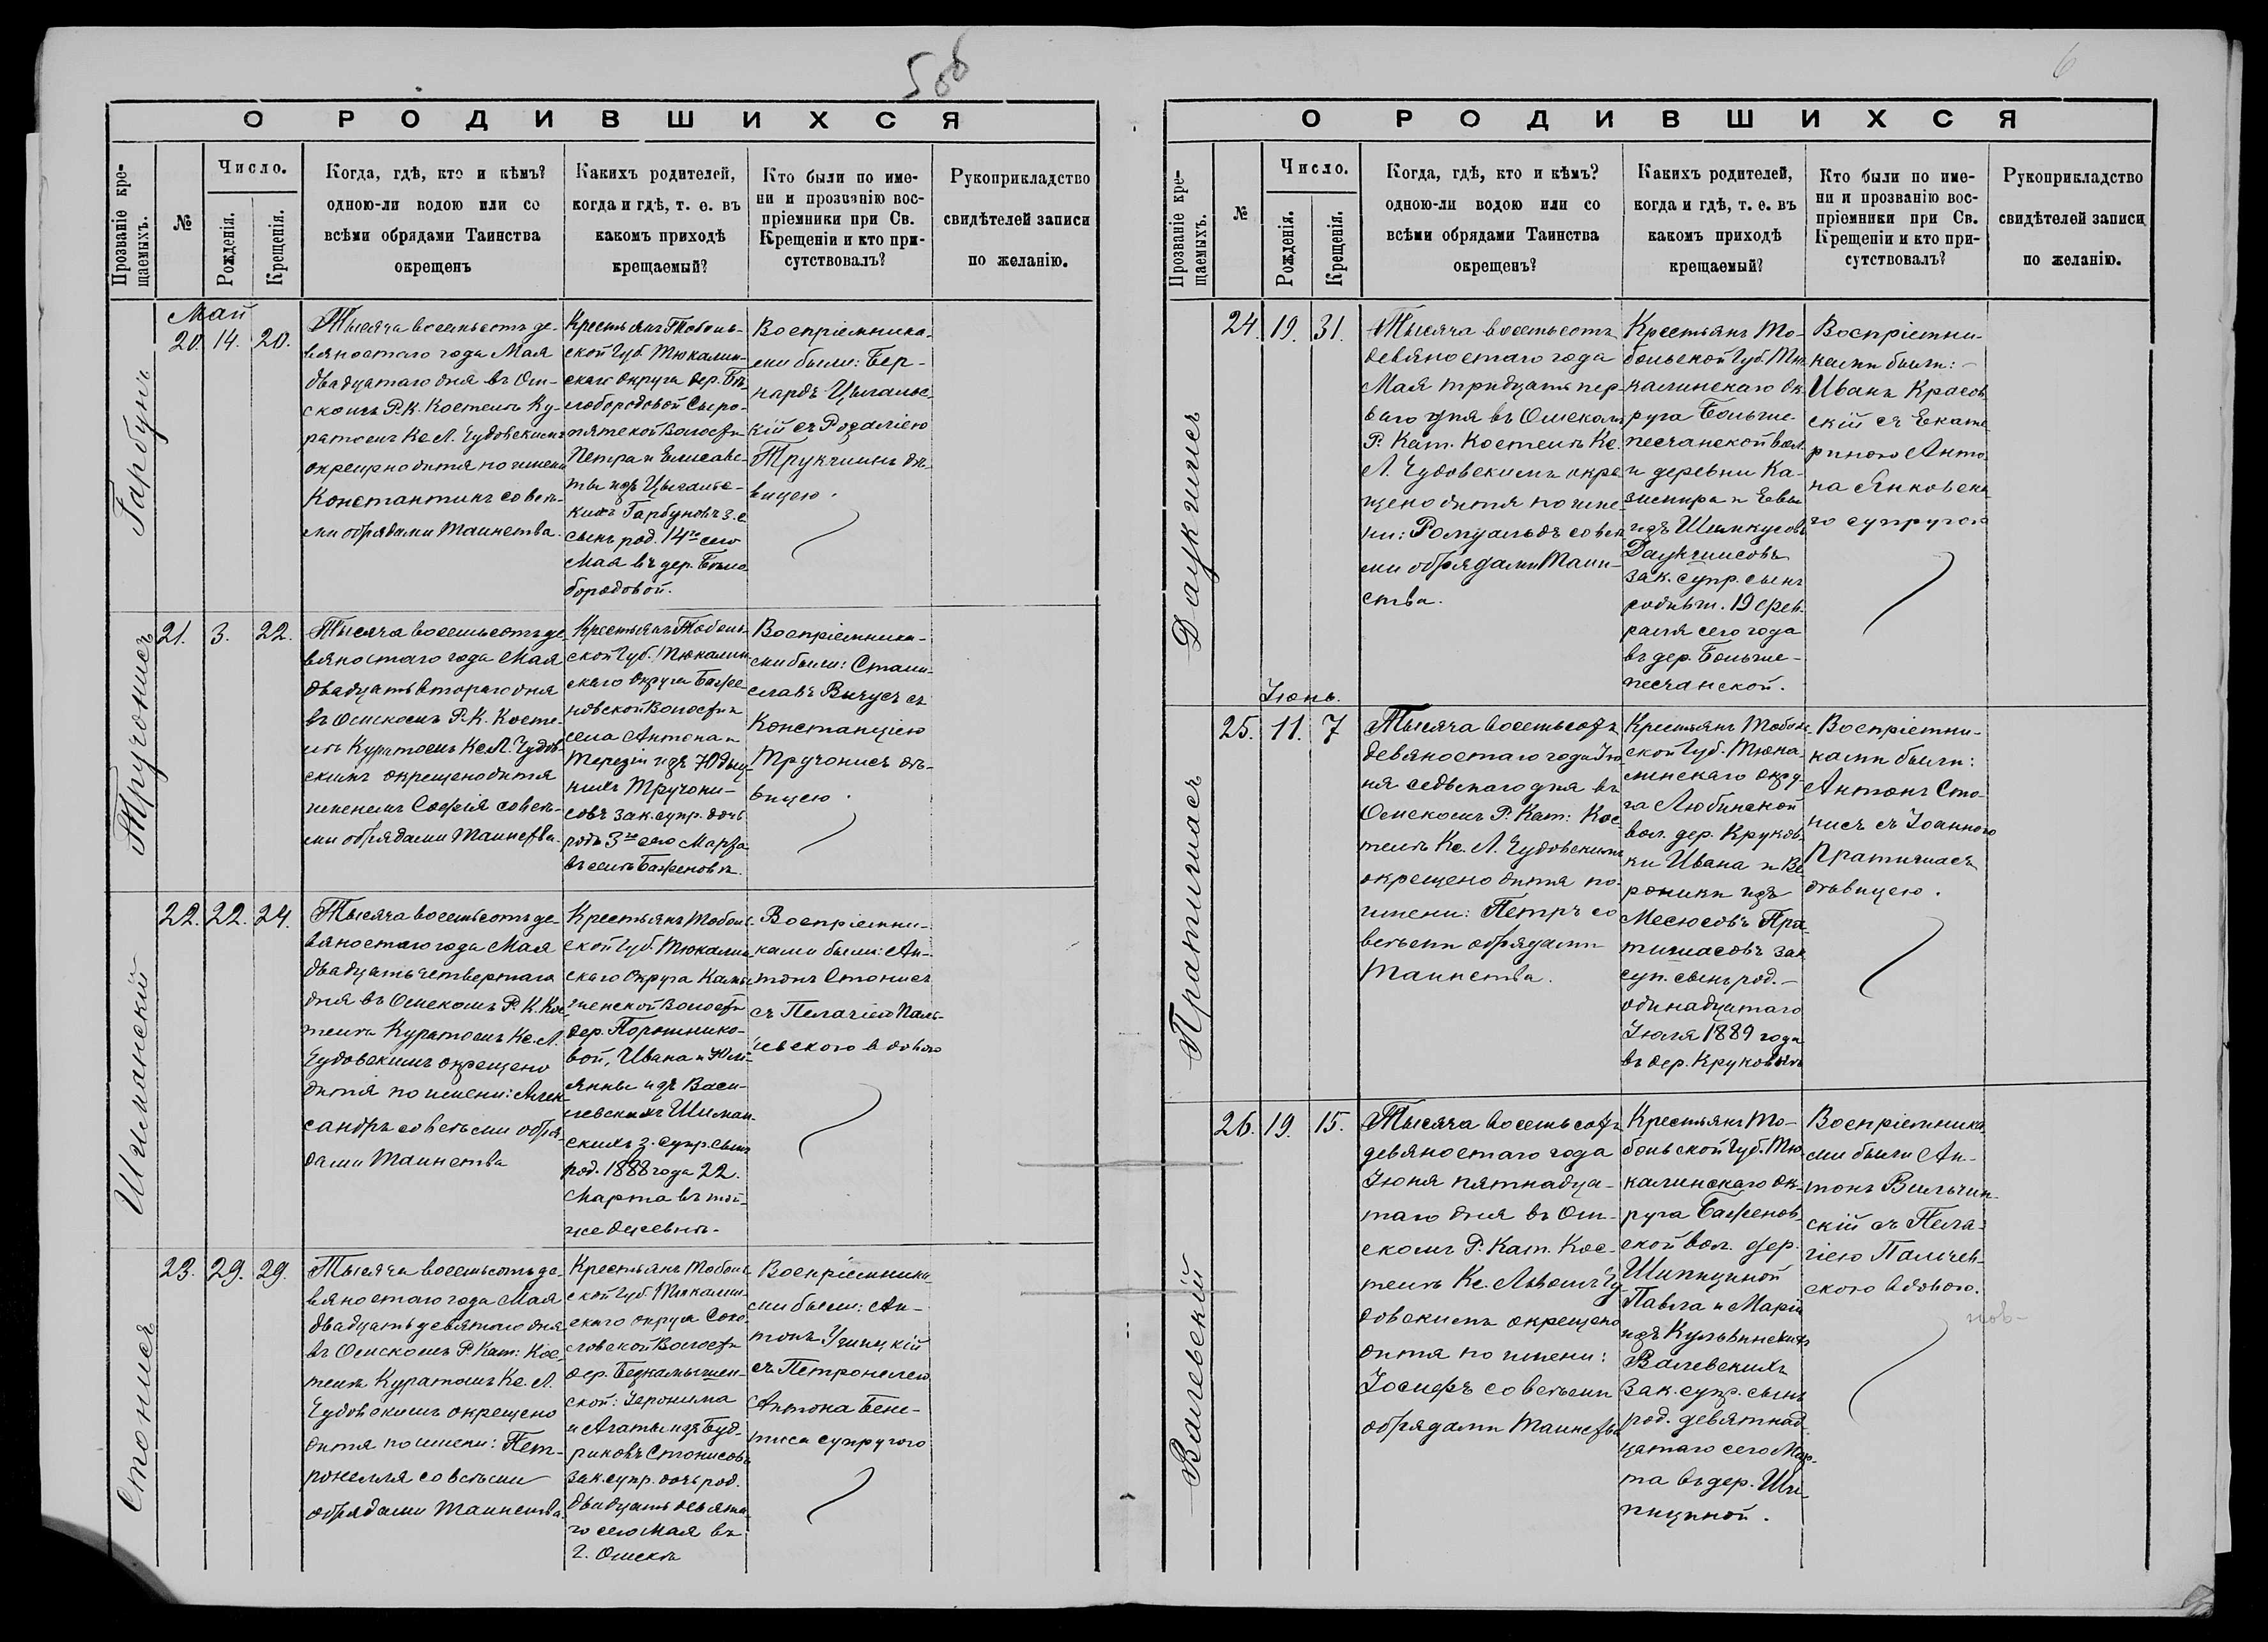 506
О РОДИВШИХСЯ
Прозваніе кре-
щаемыхъ.
№
Число.
Рожденія.
Крещенія.
Когда, гдѣ, кто и кѣмъ?
одною-ли водою или со
всѣми обрядами Таинства
окрещенъ
Какихъ родителей,
когда и гдѣ, т. е. въ
какомъ приходѣ
крещаемый?
Кто были по име-
ни и прозванію вос-
пріемники при Св.
Крещеніи и кто при-
сутствовалъ?
Рукоприкладство
свидѣтелей записи
по желанію.
Май
Гарбунъ
20. 14. 20.
Тысяча восемьсотъ де-
вяностаго года Мая
двадцатаго дня въ Ом-
скомъ Р. К. Костелѣ Ку-
ратомъ Кс. Л. Чудовскимъ
окрещено дитя по имени
Константинъ со всѣ-
ми обрядами Таинства.
Крестьянъ Тоболь-
ской Губ. Тюкалин-
скаго Округа дер. Бѣ-
лобородовой Сыро-
пятской Волости
Петра и Елисаве-
ты изъ Цыганс-
кихъ Гарбуновъ з. с.
сынъ род. 14го сего
Мая въ дер. Бѣло-
бородовой.
Воспріемника-
ми были: Бер-
нардъ Цыганс-
кій съ Розаліею
Трукчинъ дѣ-
вицею.
Тручонисъ
21. 3. 22.
Тысяча восемьсотъ де-
вяностаго года Мая
двадцать втораго дня
въ Омскомъ Р. К. Косте-
лѣ Куратомъ Кс. Л. Чудов-
скимъ окрещено дитя
именемъ Софія со всѣ-
ми обрядами Таинства.
Крестьянъ Тоболь-
ской Губ. Тюкалин
скаго Округа Баже-
новской Волости
села Антона и
Терезіи изъ Юдыц-
кихъ Тручони-
совъ зак. супр. дочь
родъ 3го сего Марта
въ селѣ Баженовѣ.
Воспріемника-
ми были: Стани-
славъ Вичусъ съ
Констанціею
Тручонисъ дѣ-
вицею.
Шиманскій
22. 22. 24.
Тысяча восемьсотъ де-
вяностаго года Мая
двадцать четвертаго
дня въ Омскомъ Р. К. Кос
телѣ Куратомъ Кс. Л.
Чудовскимъ окрещено
дитя по имени: Алек-
сандръ со всѣми обря-
дами Таинства
Крестьянъ Тоболь-
ской Губ. Тюкалин-
скаго Округа Камы
шенской Волости
дер. Порошнико-
вой, Ивана и Юлі-
янны изъ Васи-
левскихъ Шиман-
скихъ з. супр. сынъ
род. 1888 года 22.
Марта въ той-
же деревнѣ.
Воспріемни-
ками были: Ан-
тонъ Стонисъ
съ Пелагіею Паль-
чевскою вдовою
Стонисъ
23. 29. 29.
Тысяча восемьсотъ де-
вяностаго года Мая
двадцать девятаго дня
въ Омскомъ Р. Кат: Кос-
телѣ Куратомъ Кс. Л.
Чудовскимъ окрещено
дитя по имени: Пет-
ронелля со всѣми
обрядами Таинства.
Крестьянъ Тоболь-
ской Губ. Тюкалин-
скаго округа Сого-
ловской Волости
дер. Безкамышен-
ской: Іеронима
и Агаты изъ Буд-
риковъ Стонисовъ
зак. супр. дочь род.
двадцать девята-
го сего Мая въ
г. Омскѣ
Воспріемника-
ми были: Ан-
тонъ Уминскій
съ Петронелею
Антона Бене-
тиса супругою
6
О РОДИВШИХСЯ
Прозваніе кре-
щаемыхъ.
№
Число.
Рожденія.
Крещенія.
Когда, гдѣ, кто и кѣмъ?
одною-ли водою или со
всѣми обрядами Таинства
окрещенъ?
Какихъ родителей,
когда и гдѣ, т. е. въ
какомъ приходѣ
крещаемый?
Кто были по име-
ни и прозванію вос-
пріемники при Св.
Крещеніи и кто при-
сутствовалъ?
Рукоприкладство
свидѣтелей записи
по желанію.
Даукшисъ
24. 19. 31.
Тысяча восемьсотъ
девяностаго года
Мая тридцать пер-
ваго дня въ Омскомъ
Р. Кат. Костелѣ Кс.
Л. Чудовскимъ окре-
щено дитя по име-
ни: Ромуальдъ со всѣ
ми обрядами Таин-
ства.
Крестьянъ То-
больской Губ. Тю
калинскаго Ок-
руга Больше-
песчанской вол.
и деревни Ка-
зимира и Евы
изъ Шимкусовъ
Даукшисовъ
зак. супр. сынъ
родивш. 19 фев-
раля сего года
въ дер. Больше-
песчанской.
Воспріемни-
ками были:
Иванъ Красов
скій съ Екате
риною Анто-
на Янковска
го супругою
Іюнь.
Пратишасъ
25. 11. 7
Тысяча восемьсотъ
девяностаго года Ію-
ня седьмаго дня въ
Омскомъ Р. Кат: Кос
телѣ Кс. Л. Чудовскимъ
окрещено дитя по
имени: Петръ со
всѣми обрядами
Таинства.
Крестьянъ Тоболь
ской Губ. Тюка-
линскаго окру-
га Любинской
вол. дер. Круков-
ки Ивана и Ве-
роники изъ
Месюсовъ Пра-
тишасовъ зак
суп. сынъ род.
одинадцатаго
Іюля 1889 года
въ дер. Круковкѣ
Воспріемни-
ками были:
Антонъ Сто-
нисъ съ Іоанною
Пратишасъ
дѣвицею.
Валевскій
26. 19. 15.
Тысяча восемьсотъ
девяностаго года
Іюня пятнадца-
таго дня въ Ом-
скомъ Р. Кат. Кос-
телѣ Кс. Львомъ Чу
довскимъ окрещено
дитя по имени:
Іосифъ со всѣми
обрядами Таинства
Крестьянъ То-
больской Губ. Тю
калинскаго Ок-
руга Баженов-
ской вол. дер.
Шипициной
Павла и Маріи
изъ Кульвинскихъ
Валевскихъ
зак. супр. сынъ
род. девятнад-
цатаго сего Мар-
та въ дер. Ши-
пициной.
Воспріемника-
ми были Ан-
тонъ Вильчин-
скій съ Пела-
гіею Пальчев-
скою вдовою.